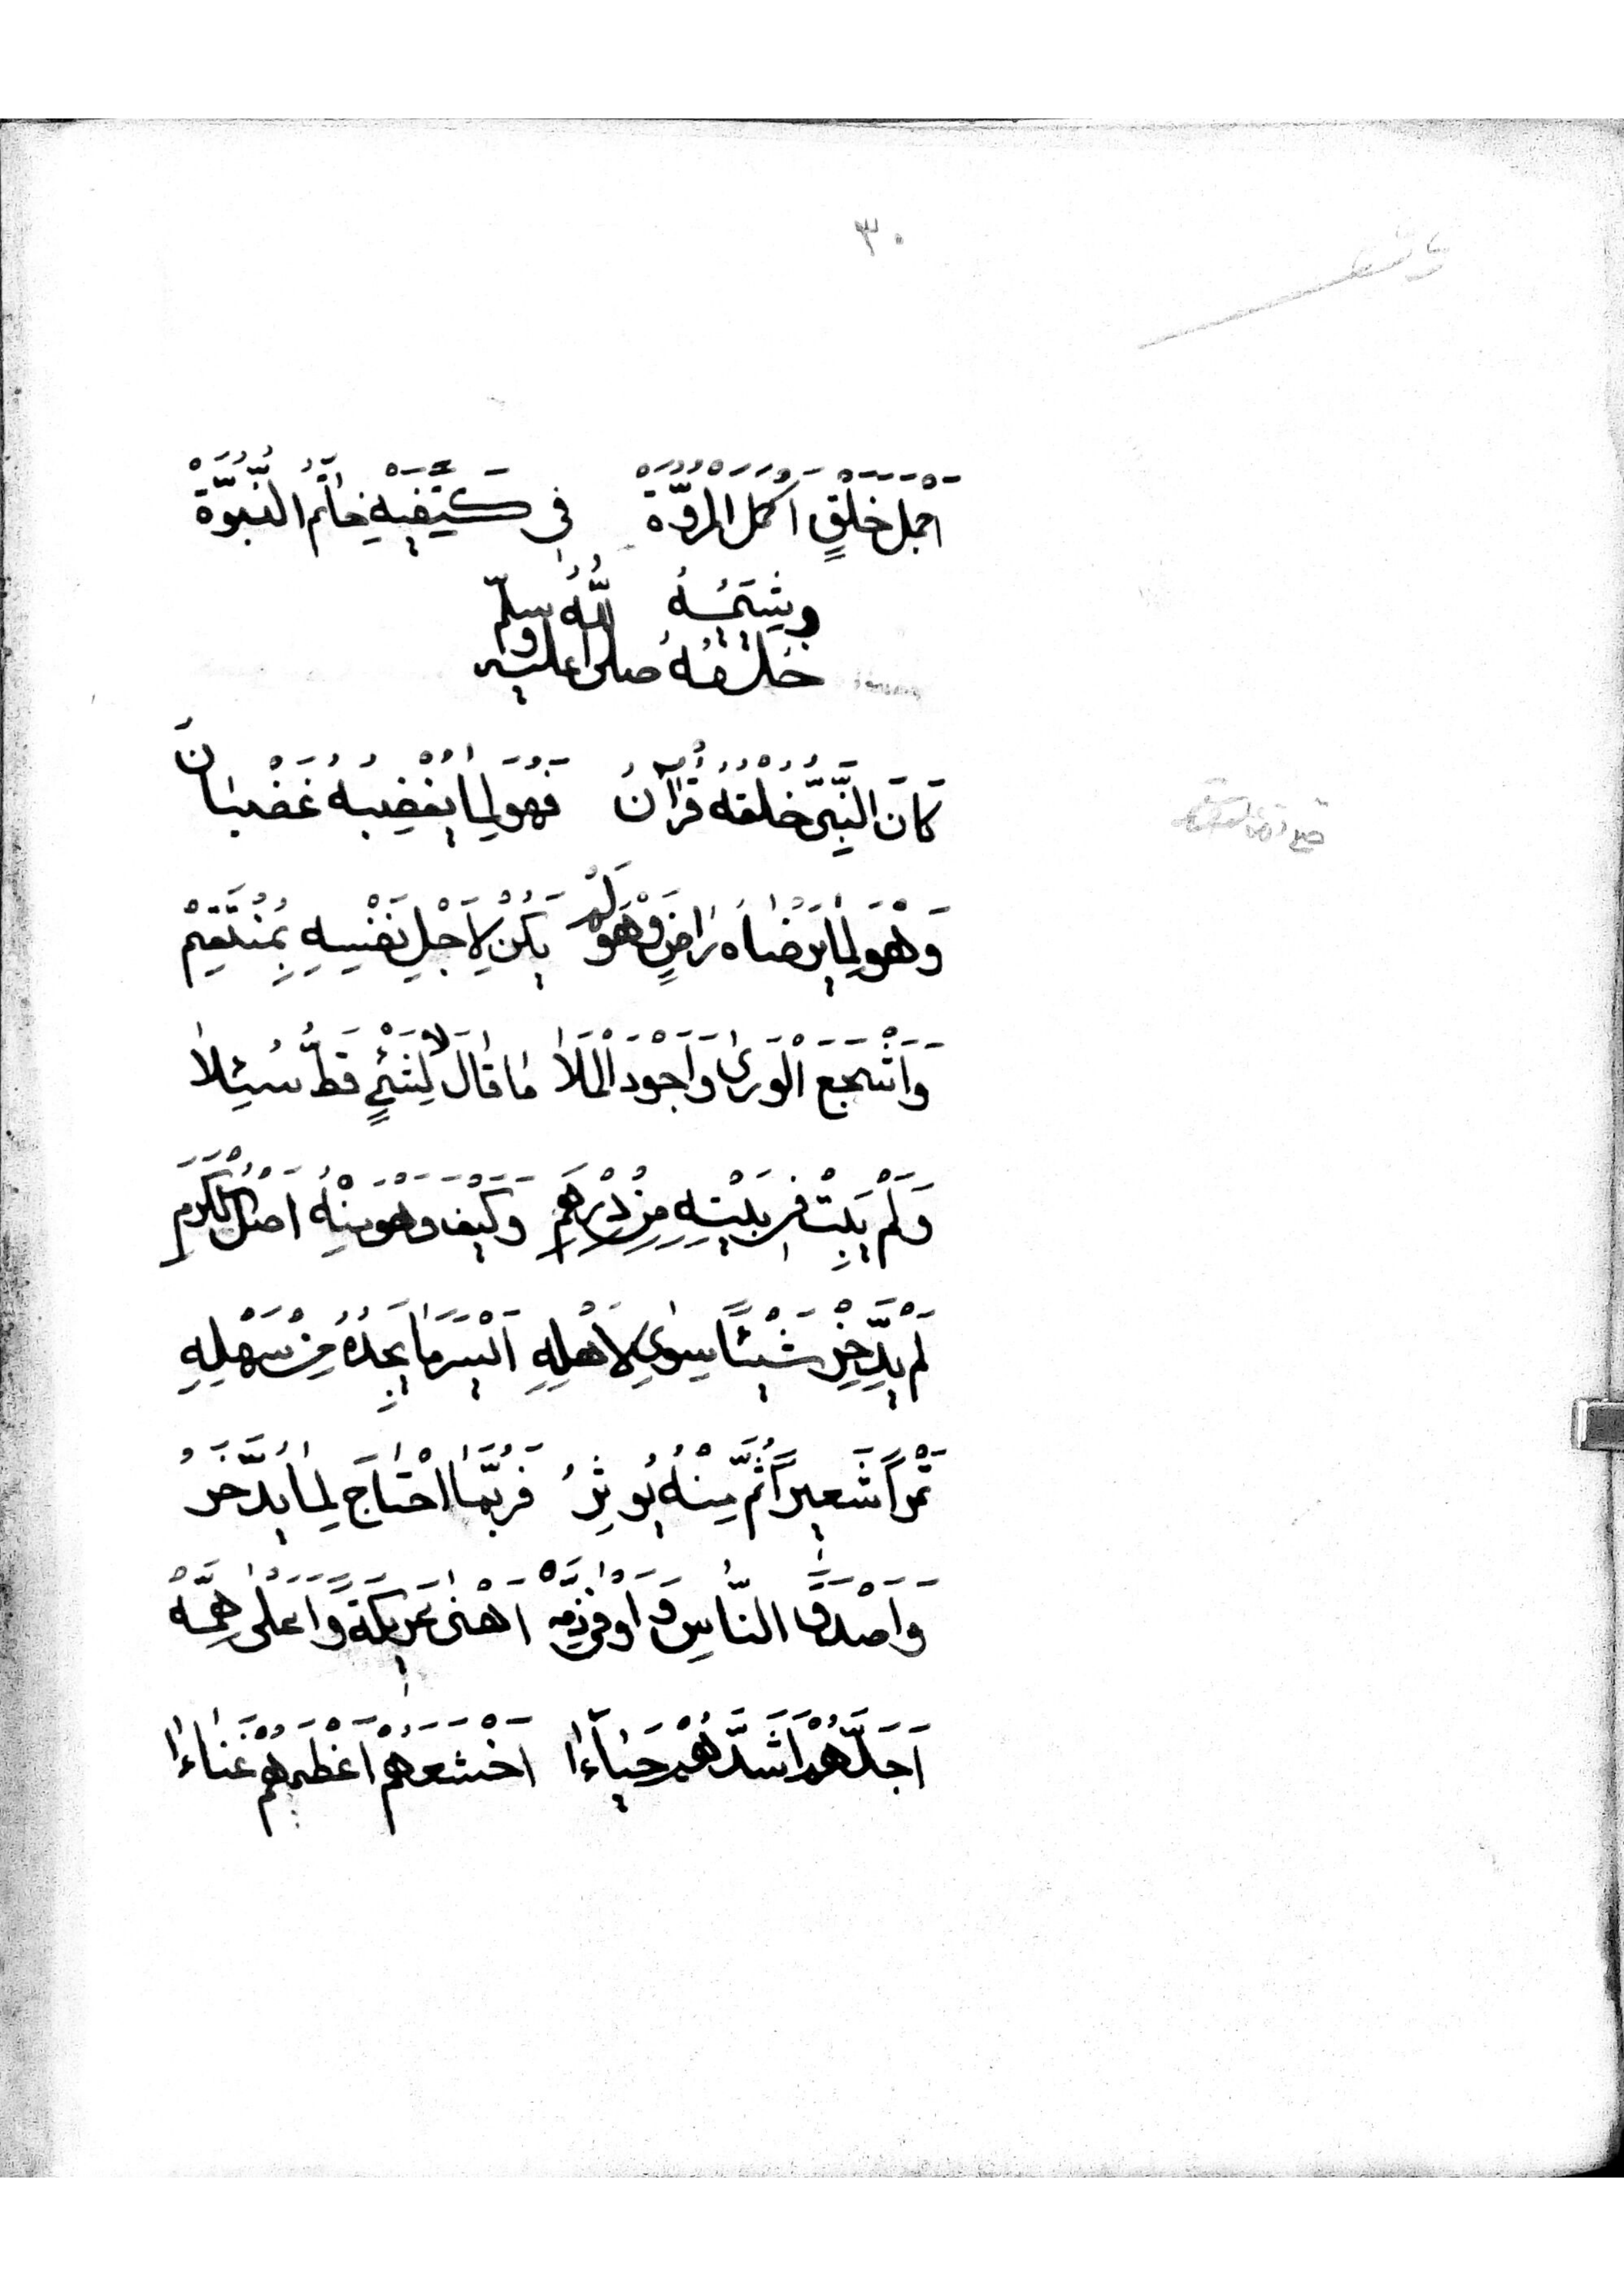 ٣٠
اَجْمَلُ خَلْقٍ اَكْمَلُ الْمُرُوَّةْ في كَتِفَيْهِ خَاتَمُ النُّبُوَّةْ
وشِيَمُهُ
خُلُقُهُ صلى اللّٰهُ عليه وسلّم
كَانَ النَّبِىُّ خُلْقُهُ قُرْآنُ فَهُوَ لِمَا يُغْضِبُهُ غَضْبَانَ
وَهْوَ لِمَا يَرْضَاهُ رَاضٍ وَهْوَ لَمْ يَكُنْ لِاَجْلِ نَفْسِهِ بِمُنْتَقِمْ
وَاَشْجَعَ الْوَرىٰ وَاَجْوَدَ الْمَلَا مَا قَالَ لَا لِشَيْءٍ قَطُّ سُئِلَا
وَلَمْ يَبِتْ فى بَيْتِهِ مِنْ دِرْهَمِ وَكَيْفَ وَهْوَ مِنْهُ اَصْلُ الْكَرَمِ
لَمْ يَدَّخِرْ شَيْئًا سِوىٰ لِاَهْلِهِ اَيْسَرَ مَا يَجِدُهُ مِنْ سَهْلِهِ
تَمْراً شَعِيراً ثُمَّ مِنْهُ يُوثِرُ فَرُبَّمَا احْتَاجَ لِمَا يُدَّخَرُ
وَاَصْدَقَ النَّاسِ وَاَوْفىٰ ذِمَّةْ اَهْنىٰ عَرِيكَةً وَاَعْلىٰ هِمَّةْ
اَجَلَّهُمْ اَشَدَّهُمْ حَيَآءَا اَخْشَعَهُمْ اَعْظَمَهُمْ غَنَاءَا